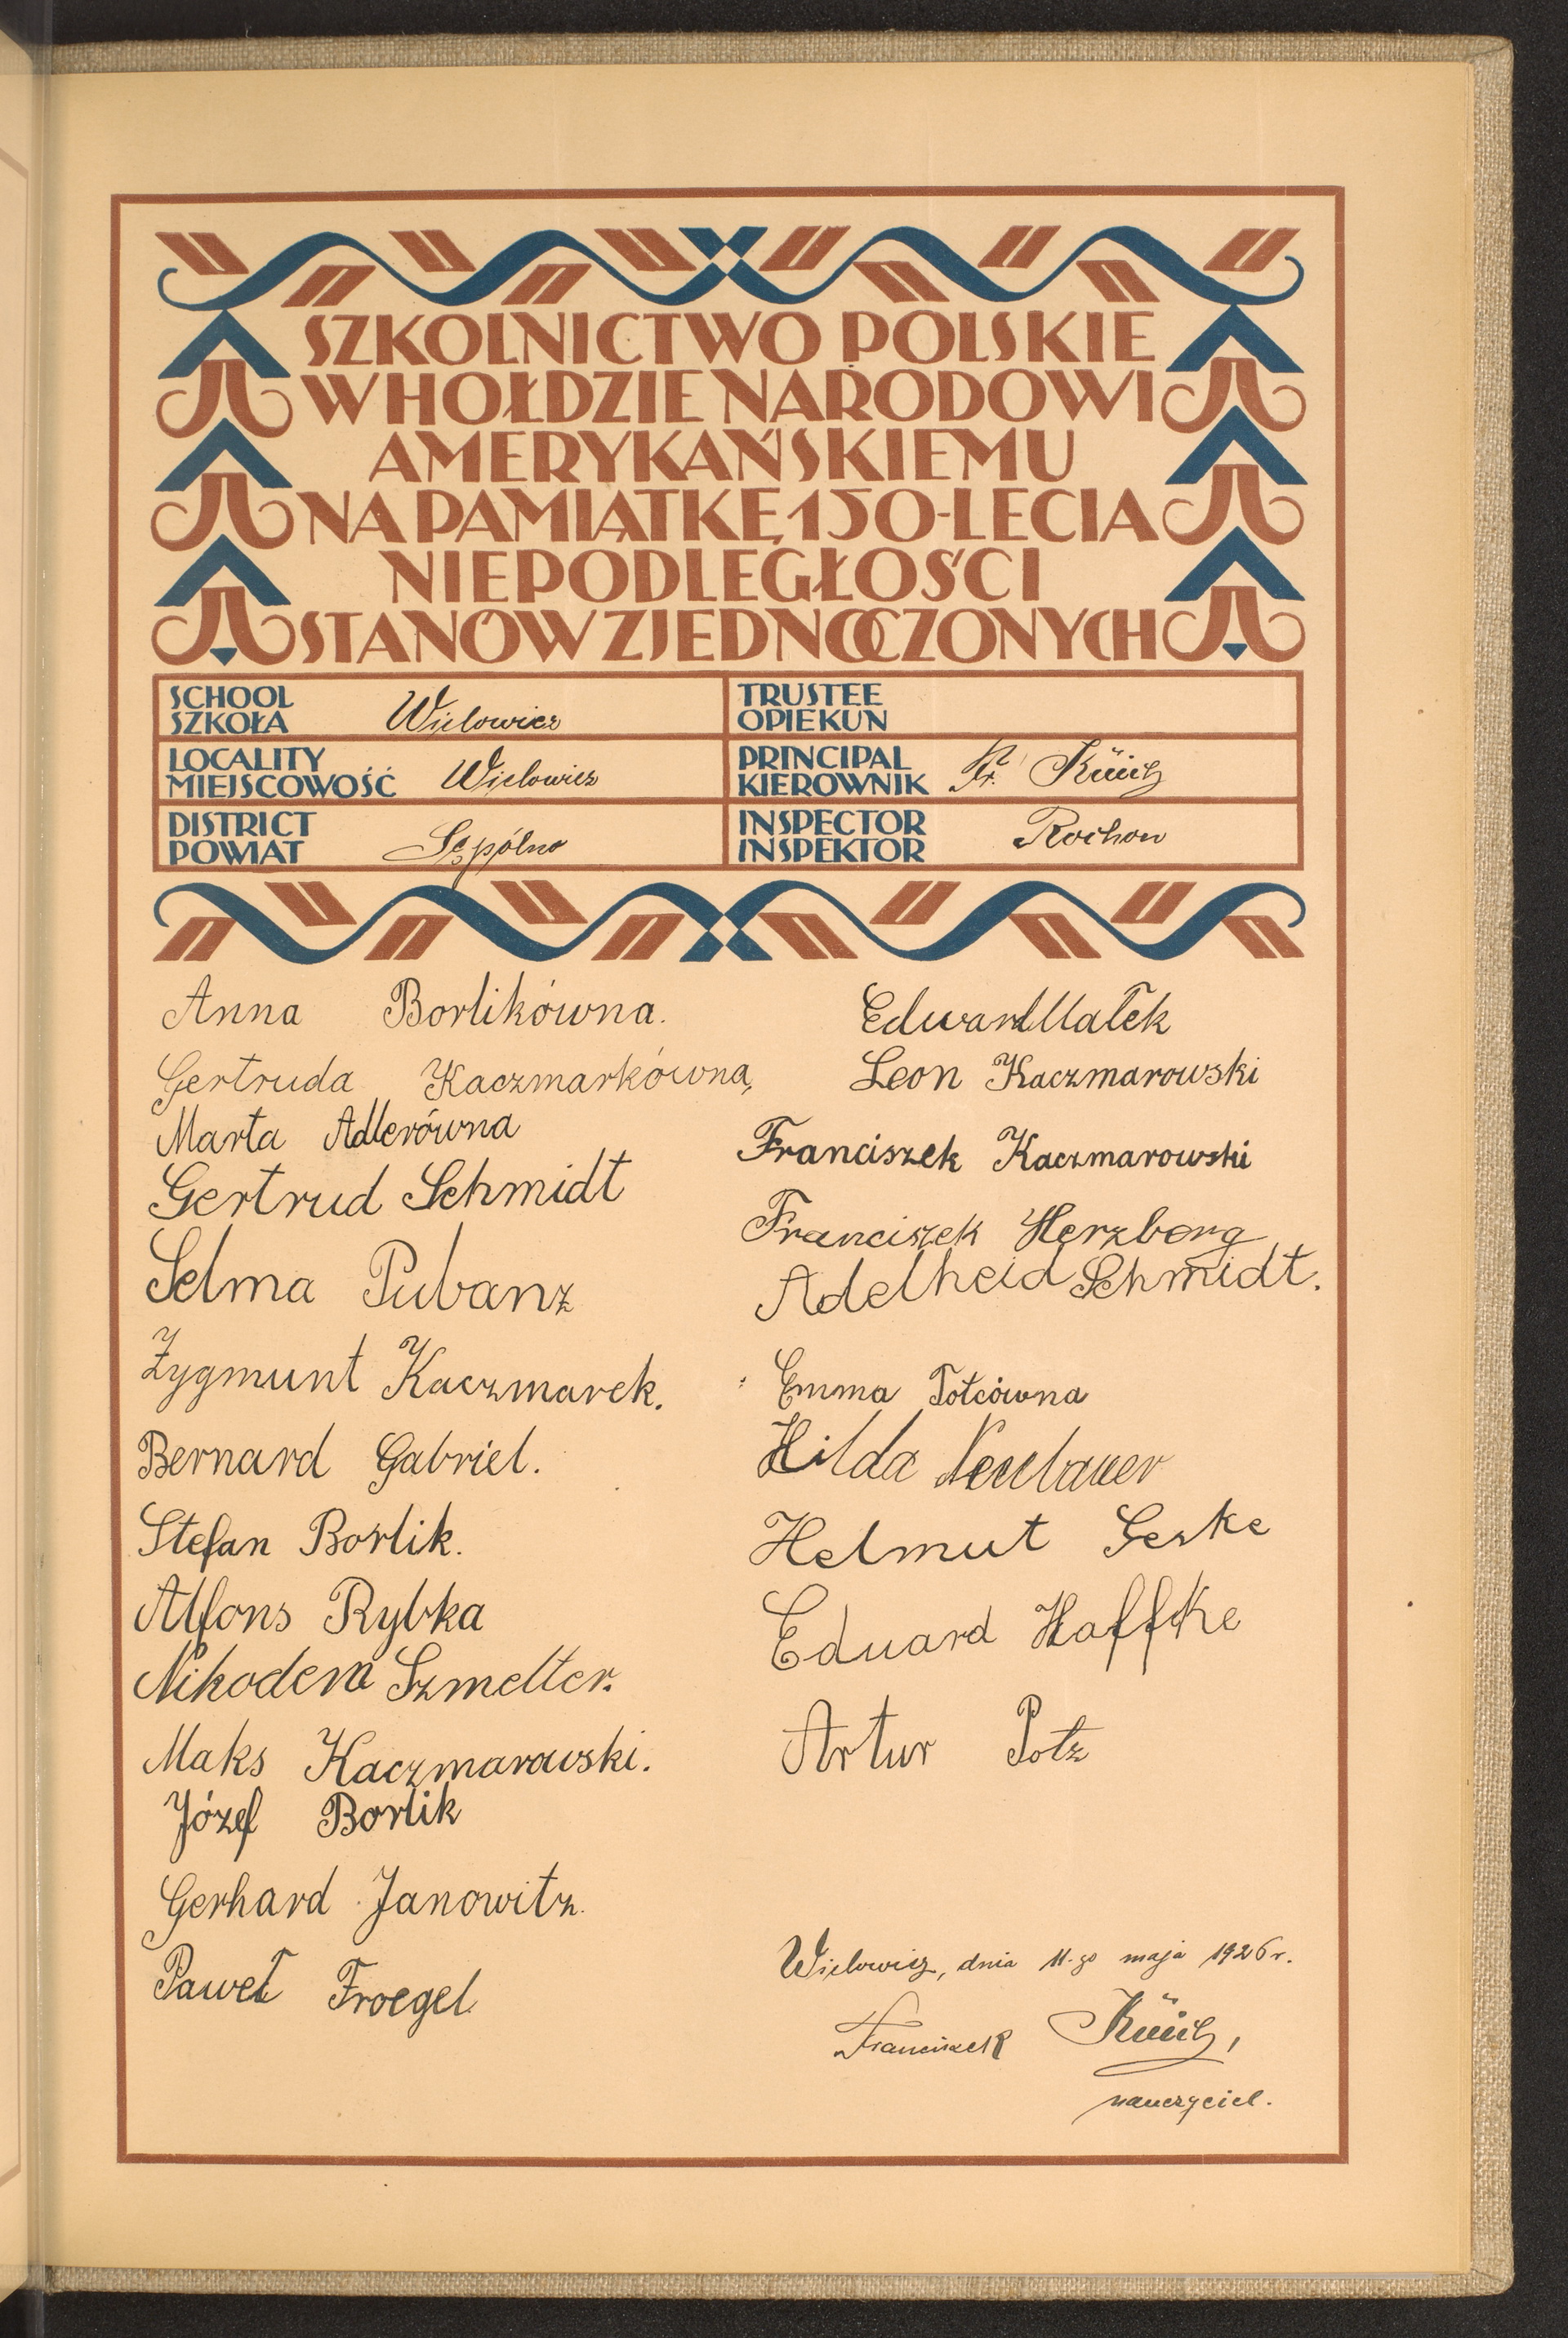 SZKOLNICTWO POLSKIE
W HOŁDZIE NARODOWI
AMERYKAŃSKIEMU
NA PAMIĄTKĘ 150-LECIA
NIEPODLEGŁOŚCI
STANÓW ZJEDNOCZONYCH
SCHOOL
SZKOŁA Wielowicz
TRUSTEE
OPIEKUN
LOCALITY
MIEJSCOWOŚĆ Wielowicz
PRINCIPAL
KIEROWNIK Fr.
DISTRICT
POWIAT Sępólno
INSPECTOR
INSPEKTOR Rochon
Anna Borlikówna.
Gertruda Kaczmarkówna,
Marta Adlerówna
Gertrud Schmidt
Selma Pubanz
Zygmunt Kaczmarek.
Bernard Gabriel.
Stefan Borlik.
Alfons Rybka
Nikodem Szmelter.
Maks Kaczmarowski.
Józef Borlik
Gerhard Janowitz.
Paweł Froegel
Edward Małek
Leon Kaczmarowski
Franciszek Kaczmarowski
Franciszek Herzberg
Adelheid Schmidt.
Emma Potcówna
Hilda Neubauer
Helmut Geske
Eduard Haffke
Artur Potz
Wielowicz, dnia 11-go maja 1926 r.
Franciszek
nauczyciel.